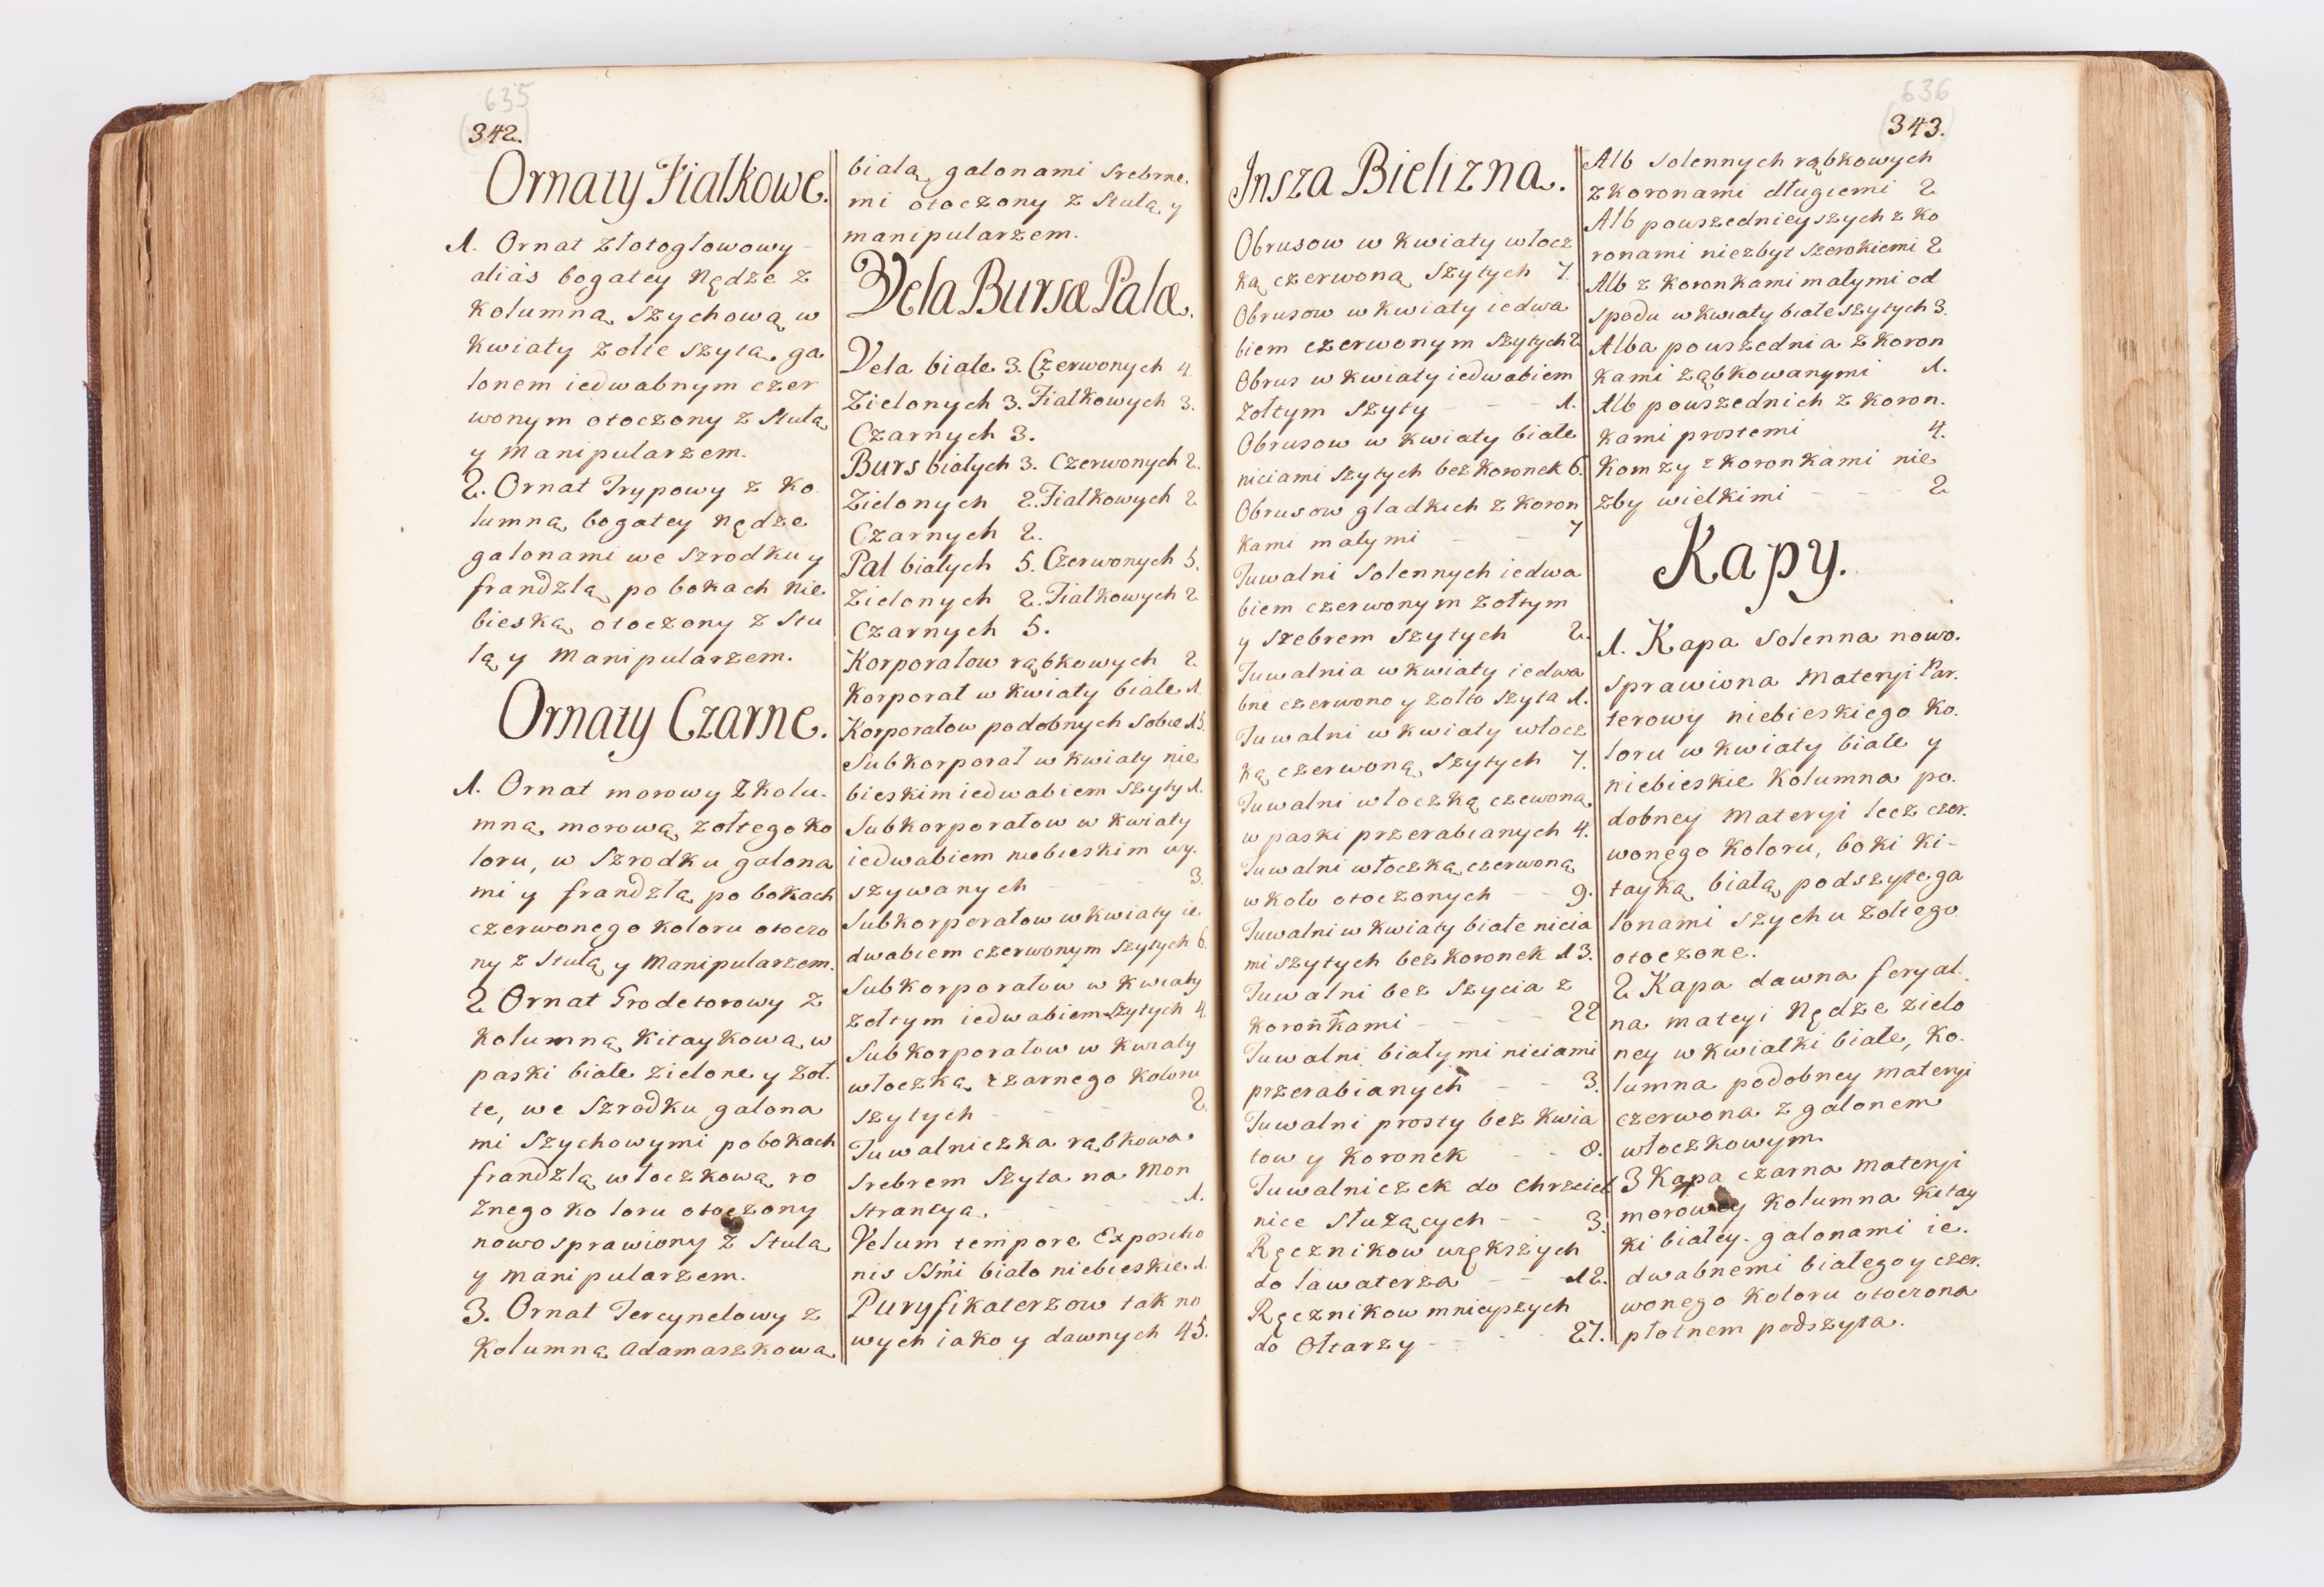 635
342.
Ornaty Fiałkowe.
1. Ornat Złotogłowowy
aliàs bogatey Nędze z
Kolumną Szychową w
Kwiaty żołte szyta, ga
lonem iedwabnym czer
wonym otoczony z Stułą
y Manipularzem.
2. Ornat Trypowy z Ko
lumną bogatey Nędze
galonami we Szrodku y
frandzlą po bokach Nie
bieską otoczony z Stu
łą y Manipularzem.
Ornaty Czarne.
1. Ornat morowy Z Kolu-
mną morową żołtego Ko
loru, w Szrodku galona
mi y frandzlą po bokach
czerwonego Koloru otoczo
ny z Stulą y Manipularzem.
2 Ornat Grodetorowy z
Kolumną Kitaykową w
paski białe zielone y żoł
te, we Szrodku galona
mi Szychowymi po bokach
frandzlą włoczkową ro
żnego Ko loru otoczony
nowo sprawiony z Stulą
y Manipularzem.
3. Ornat Tercynelowy z
Kolumną Adamaszkową
białą galonami Srebrne.
mi otoczony z Stułą y
manipularzem.
Vela Bursæ Palæ.
Vela białe 3. Czerwonych 4.
Zielonych 3. Fiałkowych 3.
Czarnych 3.
Burs białych 3. Czerwonych 2.
Zielonych 2. Fiałkowych 2
Czarnych 2.
Pal białych 5. Czerwonych 5.
Zielonych 2. Fiałkowych 2
Czarnych 5.
Korporałow rąbkowych 2.
Korporał w Kwiaty białe 1.
Korporałow podobnych Sobie 15.
Subkorporał w Kwiaty nie
bieskim iedwabiem Szyty 1.
Subkorporałow w Kwiaty
iedwabiem niebieskim wy.
szywanych 3.
Subkorporałow w Kwiaty ie
dwabiem czerwonym Szytych 6.
Subkorporałow w Kwiaty
żołtym iedwabiem Szytych 4.
Subkorporałow w Kwiaty
włoczką czarnego Koloru
szytych 2.
Tuwalniczka rąbkowa
Srebrem Szyta na Mon
strancyą 1.
Velum tempore Expositio
nis SSmi biało niebieskie 1.
Puryfikaterzow tak no
wych iako y dawnych 45.
636
343.
Insza Bielizna.
Obrusow w Kwiaty włocz
ką czerwoną Szytych 7.
Obrusow w Kwiaty iedwa
biem czerwonym Szytych 2
Obrus w Kwiaty iedwabiem
żołtym Szyty 1.
Obrusow w Kwiaty białe
niciami Szytych bez Koronek 6.
Obrusow gladkich z Koron
kami małymi 7
Tuwalni Solennych iedwa
biem czerwonym żołtym
y Szebrem Szytych 2.
Tuwalnia w Kwiaty iedwa
bne czerwono y żolto szyta 1.
Tuwalni w Kwiaty włocz
ką czerwoną Szytych 7.
Tuwalni włoczką czewoną
w paski przerabianych 4.
Tuwalni włoczką czerwoną
w koło otoczonych 9.
Tuwalni w Kwiaty białe nicia
mi szytych bez Koronek 13.
Tuwalni bez Szycia z
Koronkami 22
Tuwalni białymi niciami
przerabianych 3.
Tuwalni prosty bez Kwia
tow y Koronek 8.
Tuwalniczek do Chrzciel
nice Służących 3.
Ręcznikow większych
do lawaterza 12.
Ręcznikow mnieyszych
do Ołtarzy 27.
Alb Solennych rąbkowych
z koronami długiemi 2
Alb powszednieyszych z Ko
ronami niezbyt Szerokiemi 2
Alb z Koronkami małymi od
spodu w Kwiaty białe szytych 3.
Alba powszednia z Koron
Kami ząbkowanymi 1.
Alb powszednich z Koron.
Kami prostemi 4.
Komży z Koronkami nie
zby wielkimi 2
Kapy.
1. Kapa Solenna nowo.
sprawiona Materyi Par.
terowy niebieskiego Ko.
loru w Kwiaty białe y
niebieskie Kolumna po.
dobney Materyi lecz czer.
wonego Koloru, boki Ki-
tayką białą podszyte ga
lonami Szychu żołtego
otoczone.
2 Kapa dawna feryal.
na mateyi Nędze zielo
ney w Kwiatki białe, Ko.
lumna podobney materyi
czerwona z galonem
włoczkowym
3 Kapa czarna Materyi
morowey Kolumna Kitay
ki białey. galonami ie.
dwabnemi białego y czer.
wonego Koloru otoczona
płotnem podszyta.